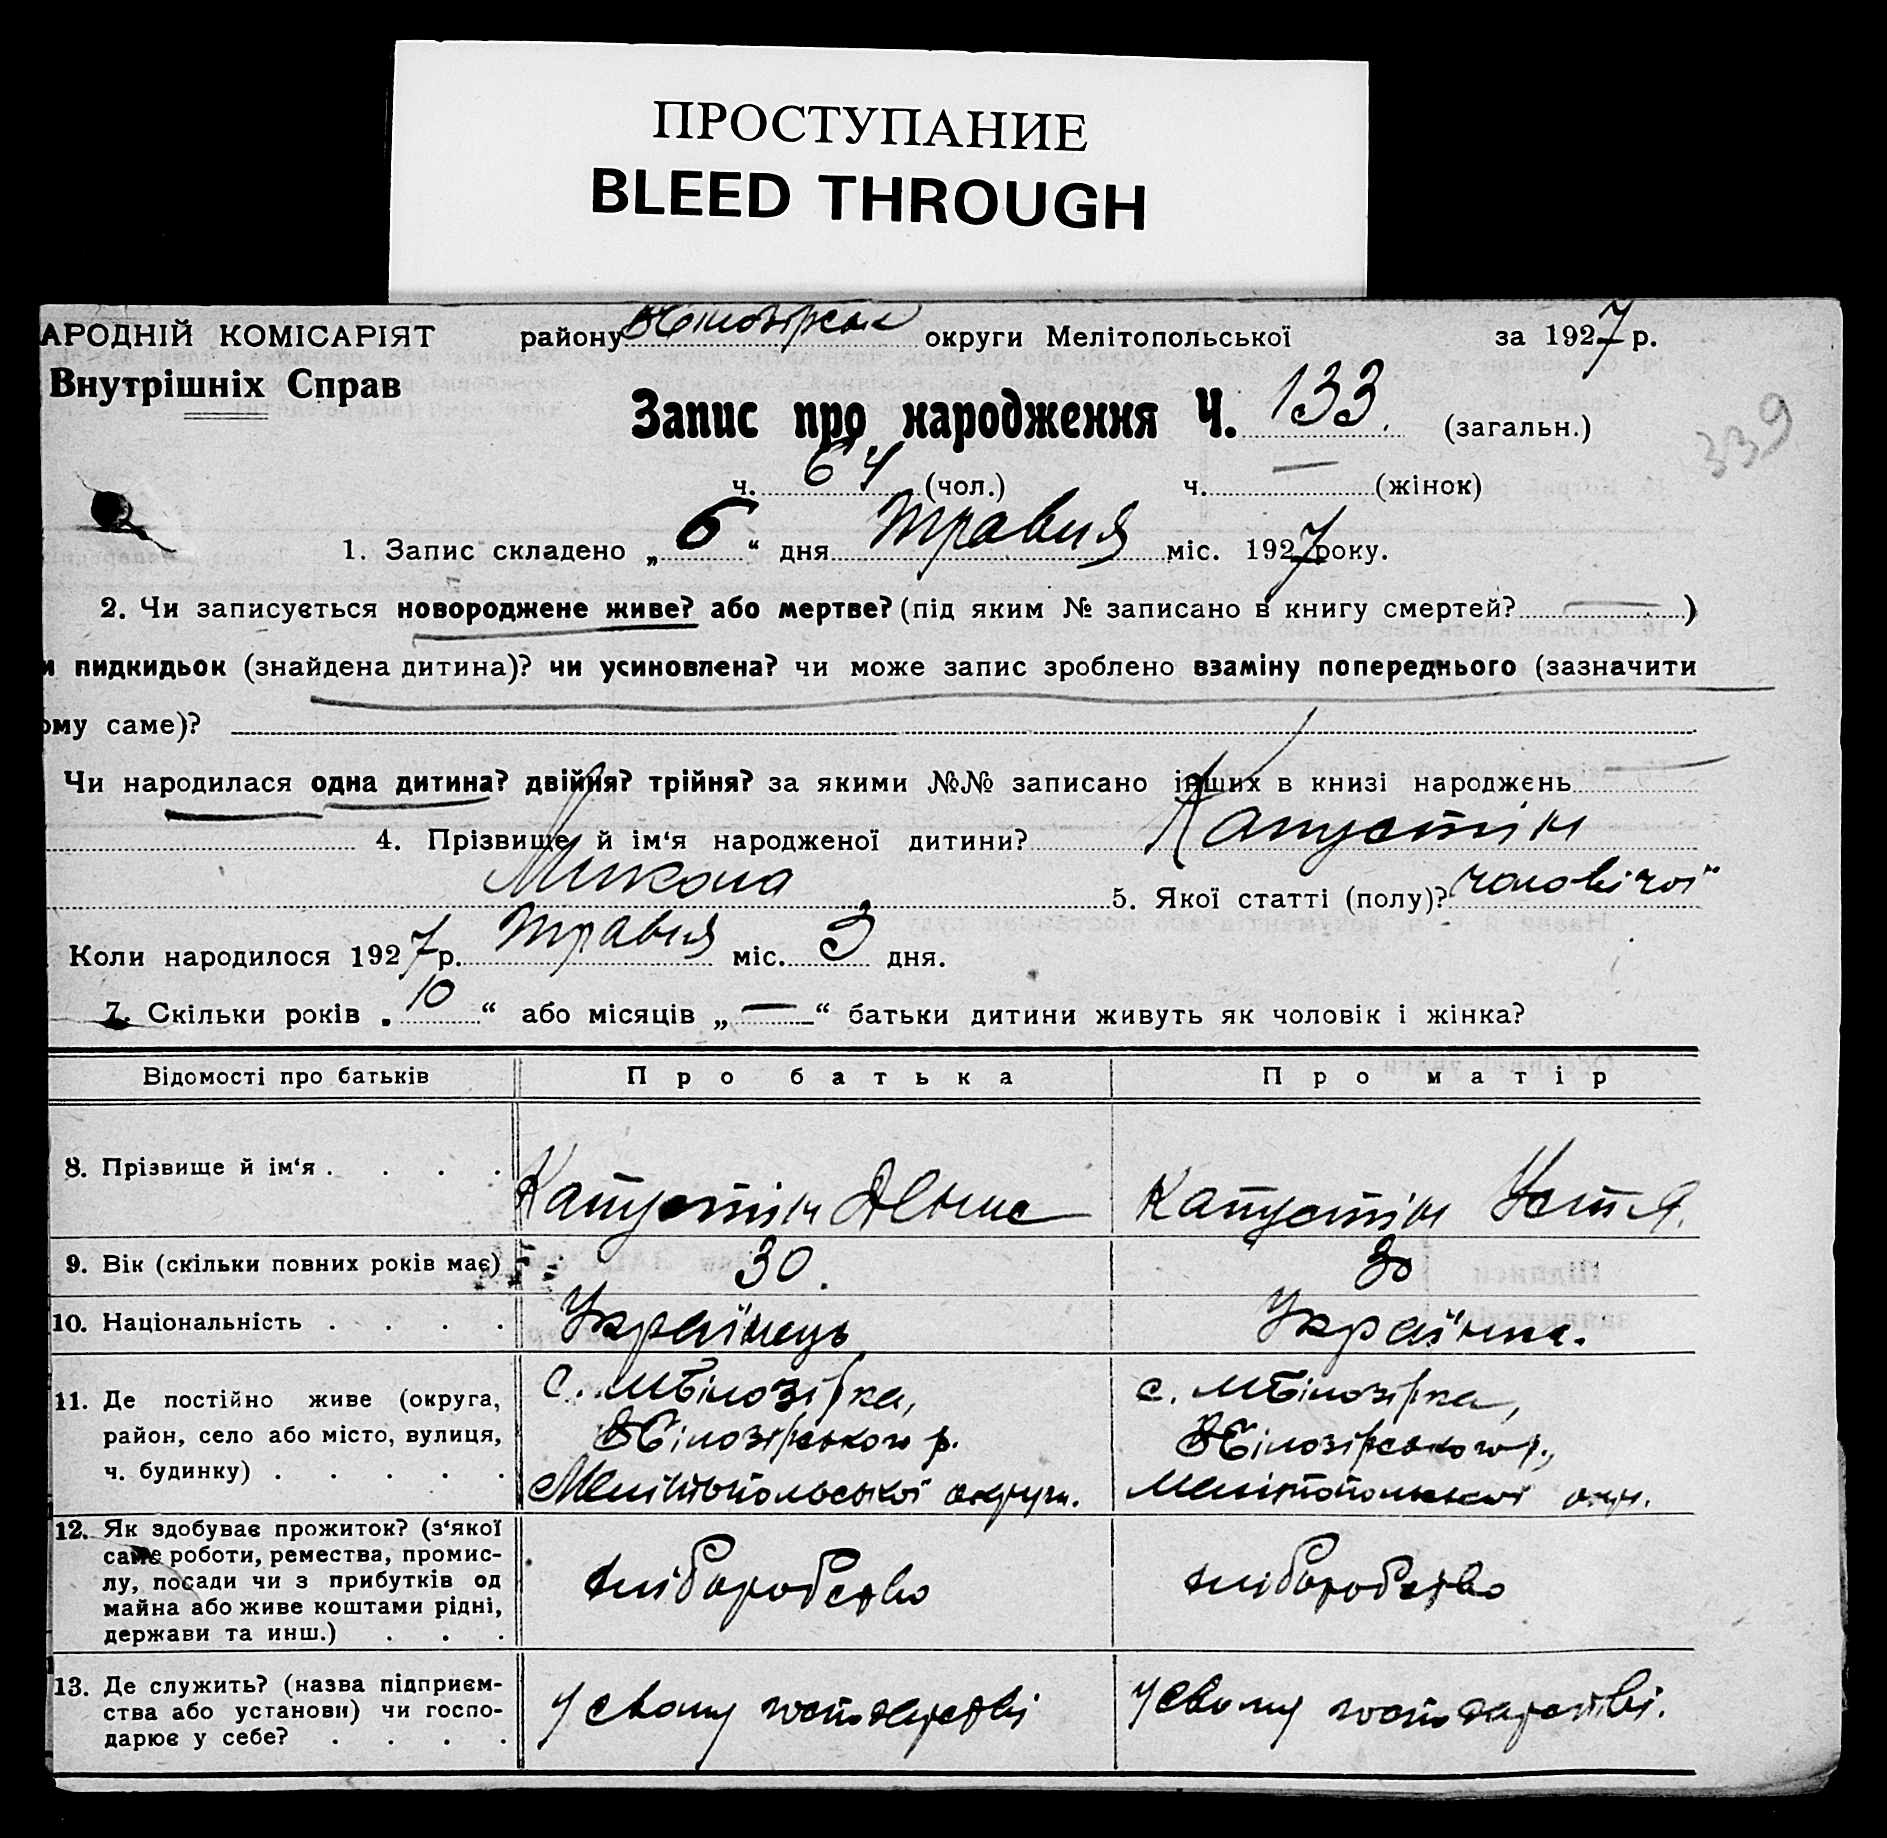 ПРОСТУПАНИЕ
BLEED THROUGH
АРОДНІЙ КОМІСАРІЯТ району ВБілозірськ округи Мелітопольської за 1927 р.
Внутрішніх Справ
Запис про народження Ч. 133. (загальн.)
339
ч. 64 (чол.) ч. — (жінок)
1. Запис складено „ 6 “ дня травня міс. 1927 року.
2. Чи записується новороджене живе? або мертве? (під яким № записано в книгу смертей? — )
и пидкидьок (знайдена дитина)? чи усиновлена? чи може запис зроблено взаміну попереднього (зазначити
ому саме)?
Чи народилася одна дитина? двійня? трійня? за якими №№ записано інших в книзі народжень —
4. Прізвище й ім‘я народженої дитини? Капустін
Микола 5. Якої статті (полу)? чоловічої
Коли народилося 1927 р. травня міс. 3 дня.
7. Скільки років „ 10 “ або місяців „ — “ батьки дитини живуть як чоловік і жінка?
Відомості про батьків Про батька Про матір
8. Прізвище й ім‘я . . . . Капустін Денис Капустін Устя.
9. Вік (скільки повних років має) 30. 30
10. Національність . . . . Українець Українка.
11. Де постійно живе (округа, с. МБілозірка, с. МБілозірка,
район, село або місто, вулиця, ВБілозірського р. ВБілозірського р.,
ч. будинку) . . . . . Мелітопольської округи. Мелітопольської окр.
12. Як здобуває прожиток? (з‘якої
саме роботи, ремества, промис-
лу, посади чи з прибутків од хліборобство хліборобство
майна або живе коштами рідні,
держави та инш.) . . .
13. Де служить? (назва підприєм-
ства або установи) чи госпо- у свому господарстві у свому господарстві.
дарює у себе? . . . .